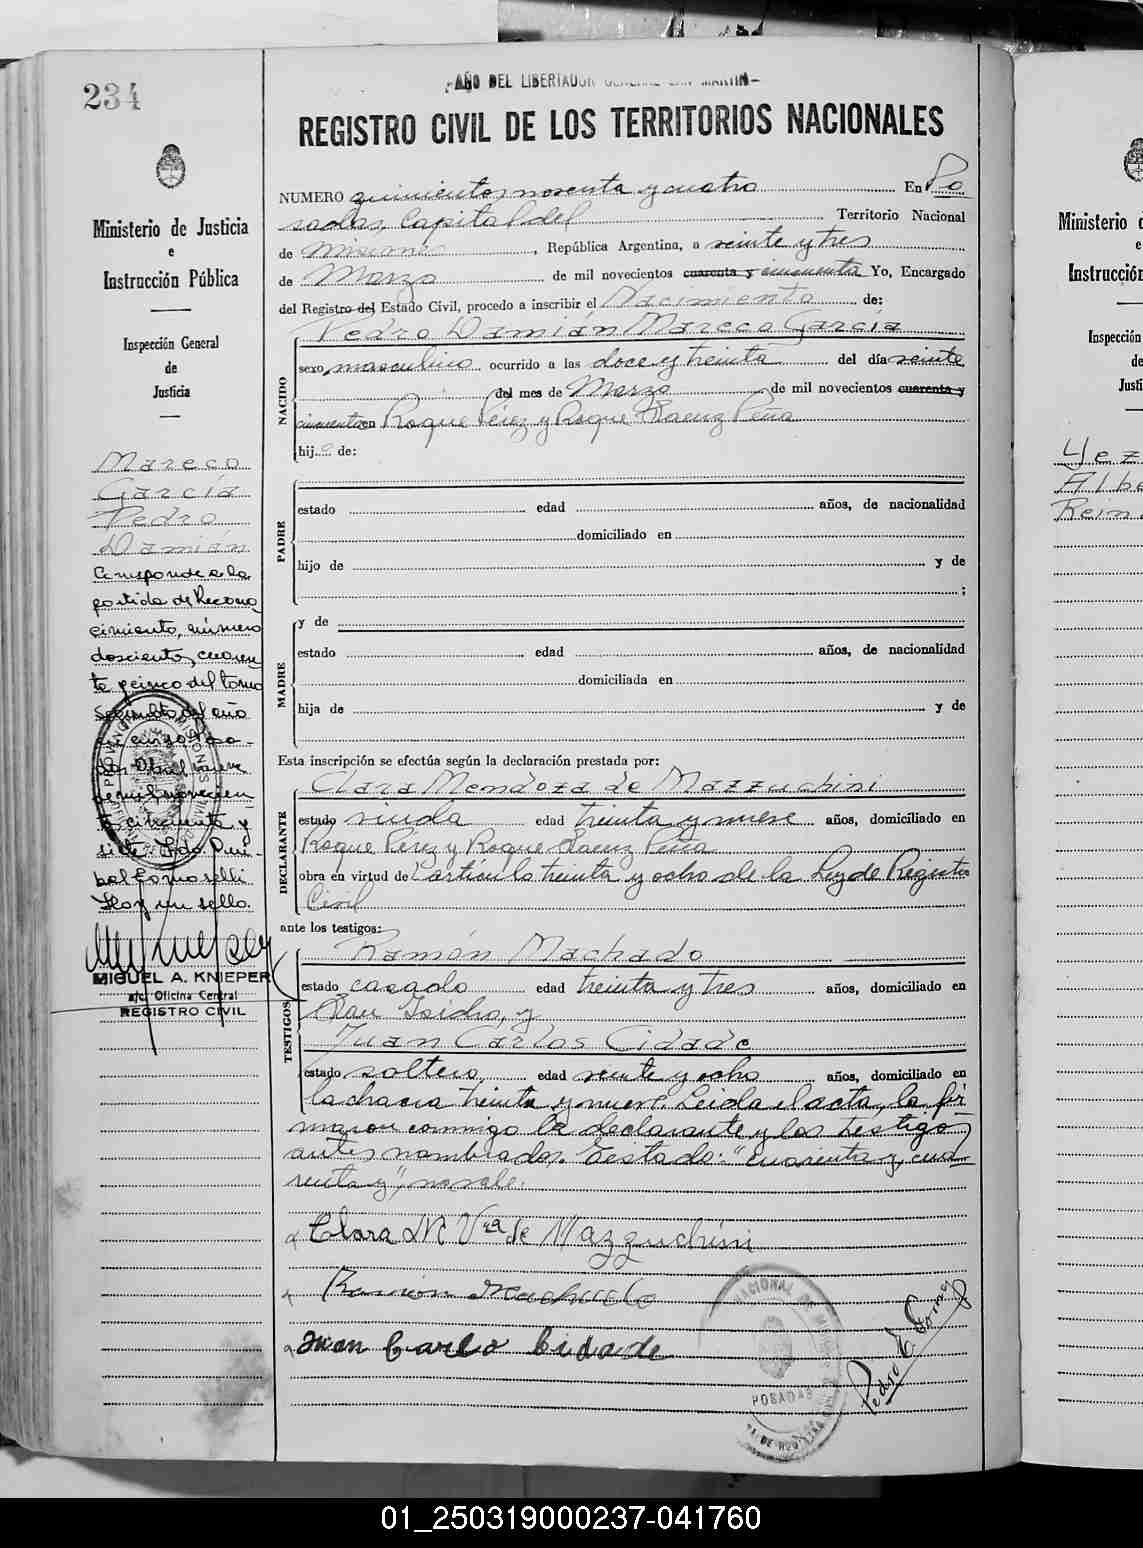 234
-AÑO DEL LIBERTADOR GENERAL SAN MARTIN-
REGISTRO CIVIL DE LOS TERRITORIOS NACIONALES
Ministerio de Justicia
e
Instrucción Pública
Inspección General
de
Justicia
Mareco
García
Pedro
Damián
Corresponde a la
partida de Recono
cimiento, número
doscientos cuaren
ta y cinco del tomo
Segundo del año
en curso. Posa-
das, Abril nueve
de mil novecien
tos cincuenta y
siete. Fdo.
Hay un sello.
MIGUEL A. KNIEPER
a/c. Oficina Central
REGISTRO CIVIL
NUMERO quinientos noventa y cuatro En Po
sadas, Capital del Territorio Nacional
de Misiones, República Argentina, a veinte y tres
de Marzo de mil novecientos cuarenta y cincuenta Yo, Encargado
del Registro del Estado Civil, procedo a inscribir el Nacimiento de:
Pedro Damián Mareco García
NACIDO
sexo masculino ocurrido a las doce y treinta del día veinte
del mes de Marzo de mil novecientos cuarenta y
cincuenta en Roque Pérez y Roque Saenz Peña
hijo de:
PADRE
estado edad años, de nacionalidad
domiciliado en
hijo de y de
;
MADRE
y de
estado edad años, de nacionalidad
domiciliada en
hija de y de
Esta inscripción se efectúa según la declaración prestada por:
DECLARANTE
Clara Mendoza de Mazzuchini
estado viuda edad treinta y nueve años, domiciliado en
Roque Pérez y Roque Saenz Peña
obra en virtud de artículo treinta y ocho de la Ley de Registro
Civil
ante los testigos:
TESTIGOS
Ramón Machado
estado casado edad treinta y tres años, domiciliado en
San Isidro, y
Juan Carlos Cidade
estado soltero edad veinte y ocho años, domiciliado en
la chacra treinta y nueve. Leida el acta, la fir
maron conmigo la declarante y los testigos
antes nombrados. Testado: "cuarenta y, cua
renta y", no vale.
Clara M Vda de Mazzuchini
Ramón Machado
Juan Carlo Cidade
POSADAS
Ministerio d
e
Instrucción
Inspección
de
Justi
Yez
Albe
Rein
01_250319000237-041760